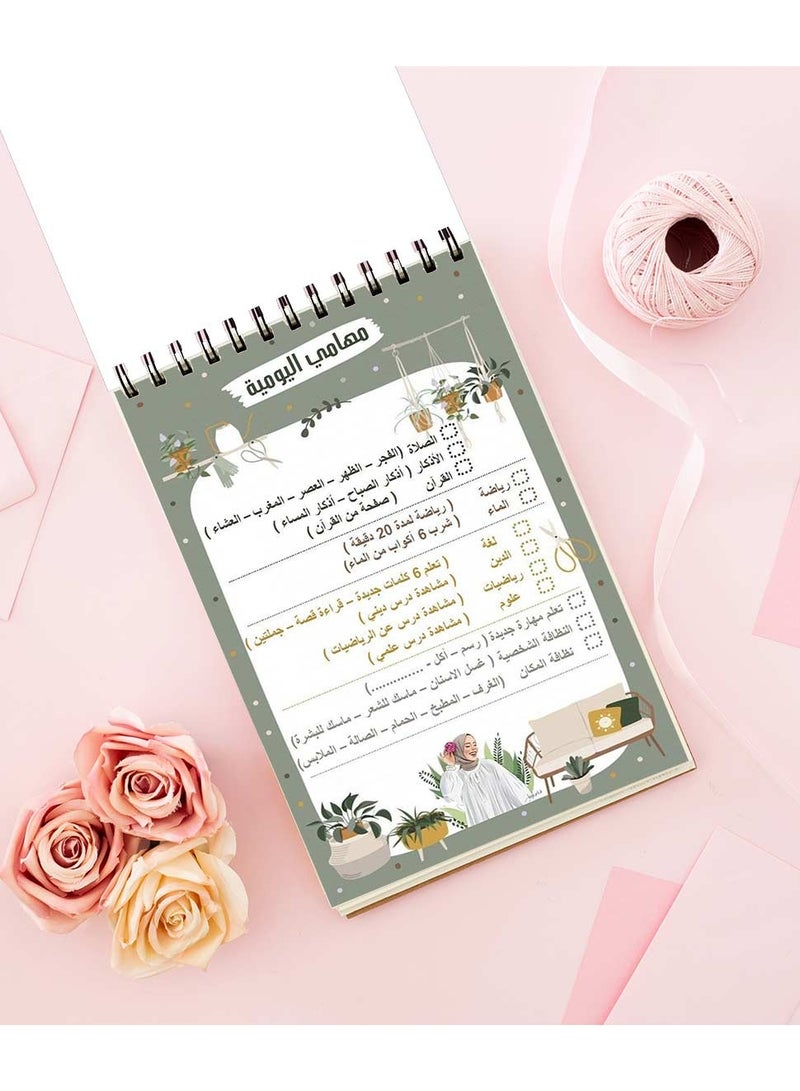 مهامي اليومية
الصلاة (الفجر – الظهر – العصر – المغرب – العشاء )
الأذكار ( أذكار الصباح – أذكار المساء )
القرآن ( صفحة من القرآن )
رياضة ( رياضة لمدة 20 دقيقة )
الماء ( شرب 6 أكواب من الماء)
لغة ( تعلم 6 كلمات جديدة – قراءة قصة – جملتين )
الدين ( مشاهدة درس ديني )
رياضيات ( مشاهدة درس عن الرياضيات )
علوم ( مشاهدة درس علمي )
تعلم مهارة جديدة ( رسم – أكل - .............)
النظافة الشخصية ( غسل الاسنان – ماسك للشعر – ماسك للبشرة)
نظافة المكان (الغرف – المطبخ – الحمام – الصالة – الملابس)